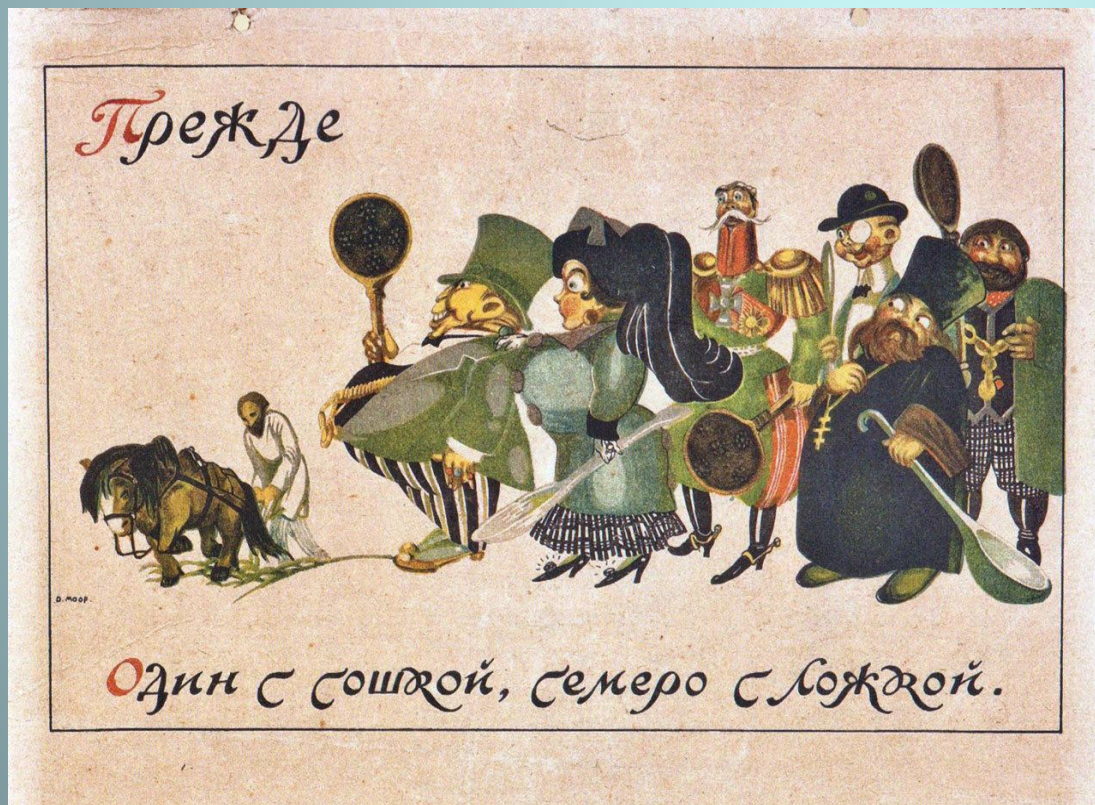 Прежде
Д. МООР.
Один с сошкой, семеро с ложкой.